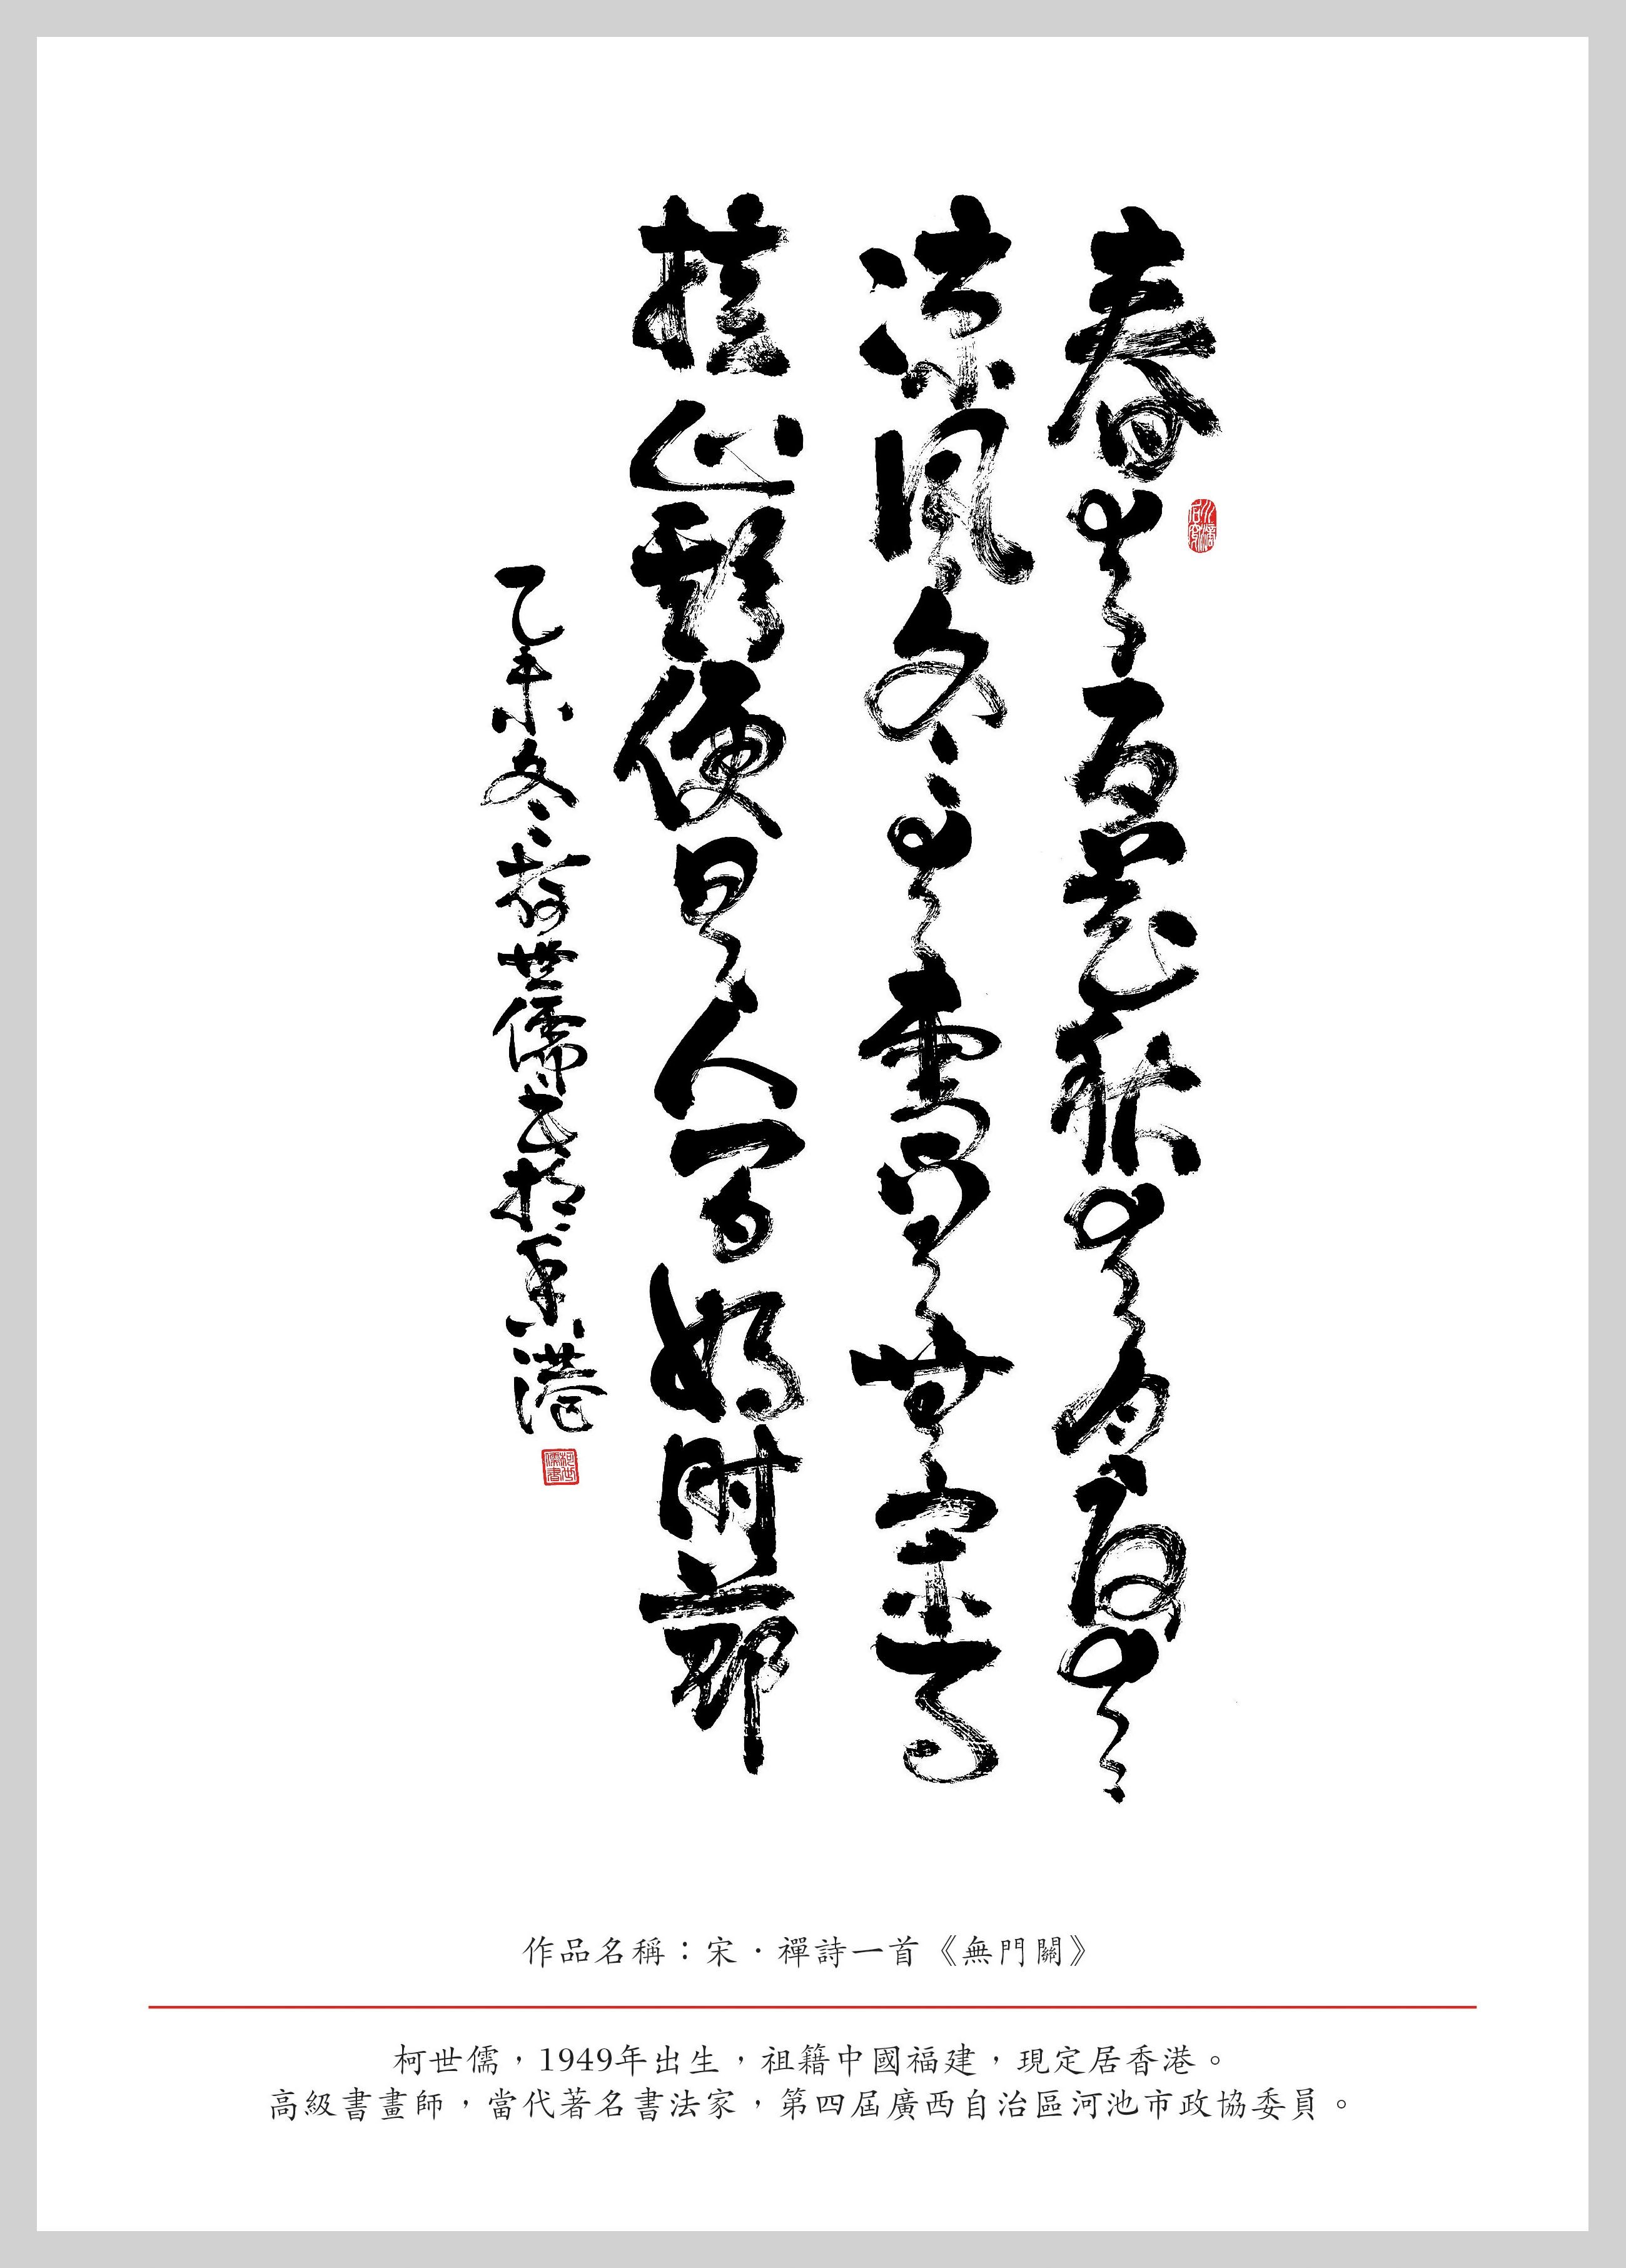 春有百花秋有月夏有
涼風冬有雪若無閑事
掛心頭便是人間好時節
乙未冬柯世儒書於香港
柯世儒書
作品名稱：宋·禪詩一首《無門關》
柯世儒，1949年出生，祖籍中國福建，現定居香港。
高級書畫師，當代著名書法家，第四屆廣西自治區河池市政協委員。